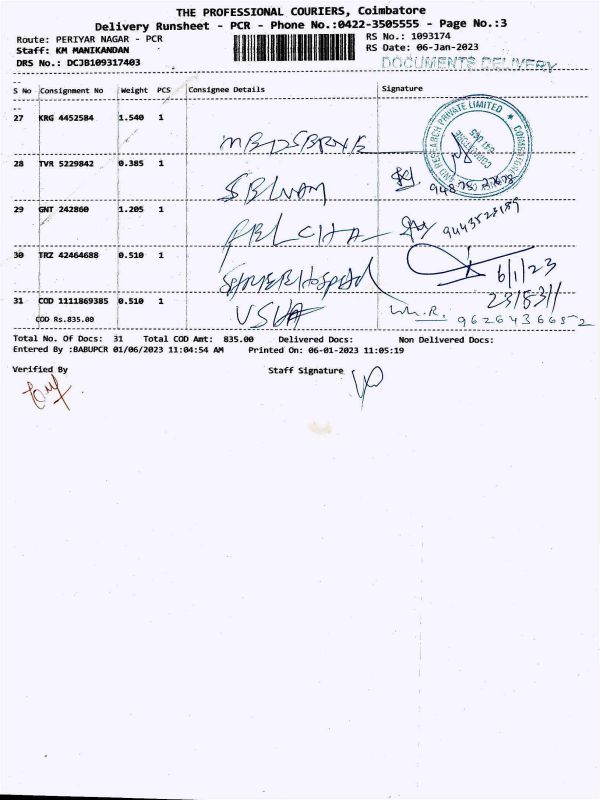 THE PROFESSIONAL COURIERS, Coimbatore
Delivery Runsheet - PCR - Phone No.:0422-3505555 - Page No.:3
Route: PERIYAR NAGAR - PCR
RS No.: 1093174
Staff: KM MANIKANDAN
RS Date: 06-Jan-2023
DRS No.: DCJB109317403
DOCUMENTS DELIVERY
S No Consignment No Weight PCS Consignee Details Signature
27 KRG 4452584 1.540 1
28 TVR 5229842 0.385 1
29 GNT 242860 1.205 1
9443528189
30 TRZ 42464688 0.510 1 Hospital
6/1/23
23/8311
31 COD 1111869385 0.510 1 USHA
COD Rs.835.00
9626436652
Total No. Of Docs: 31 Total COD Amt: 835.00 Delivered Docs: Non Delivered Docs:
Entered By :BABUPCR 01/06/2023 11:04:54 AM Printed On: 06-01-2023 11:05:19
Verified By Staff Signature